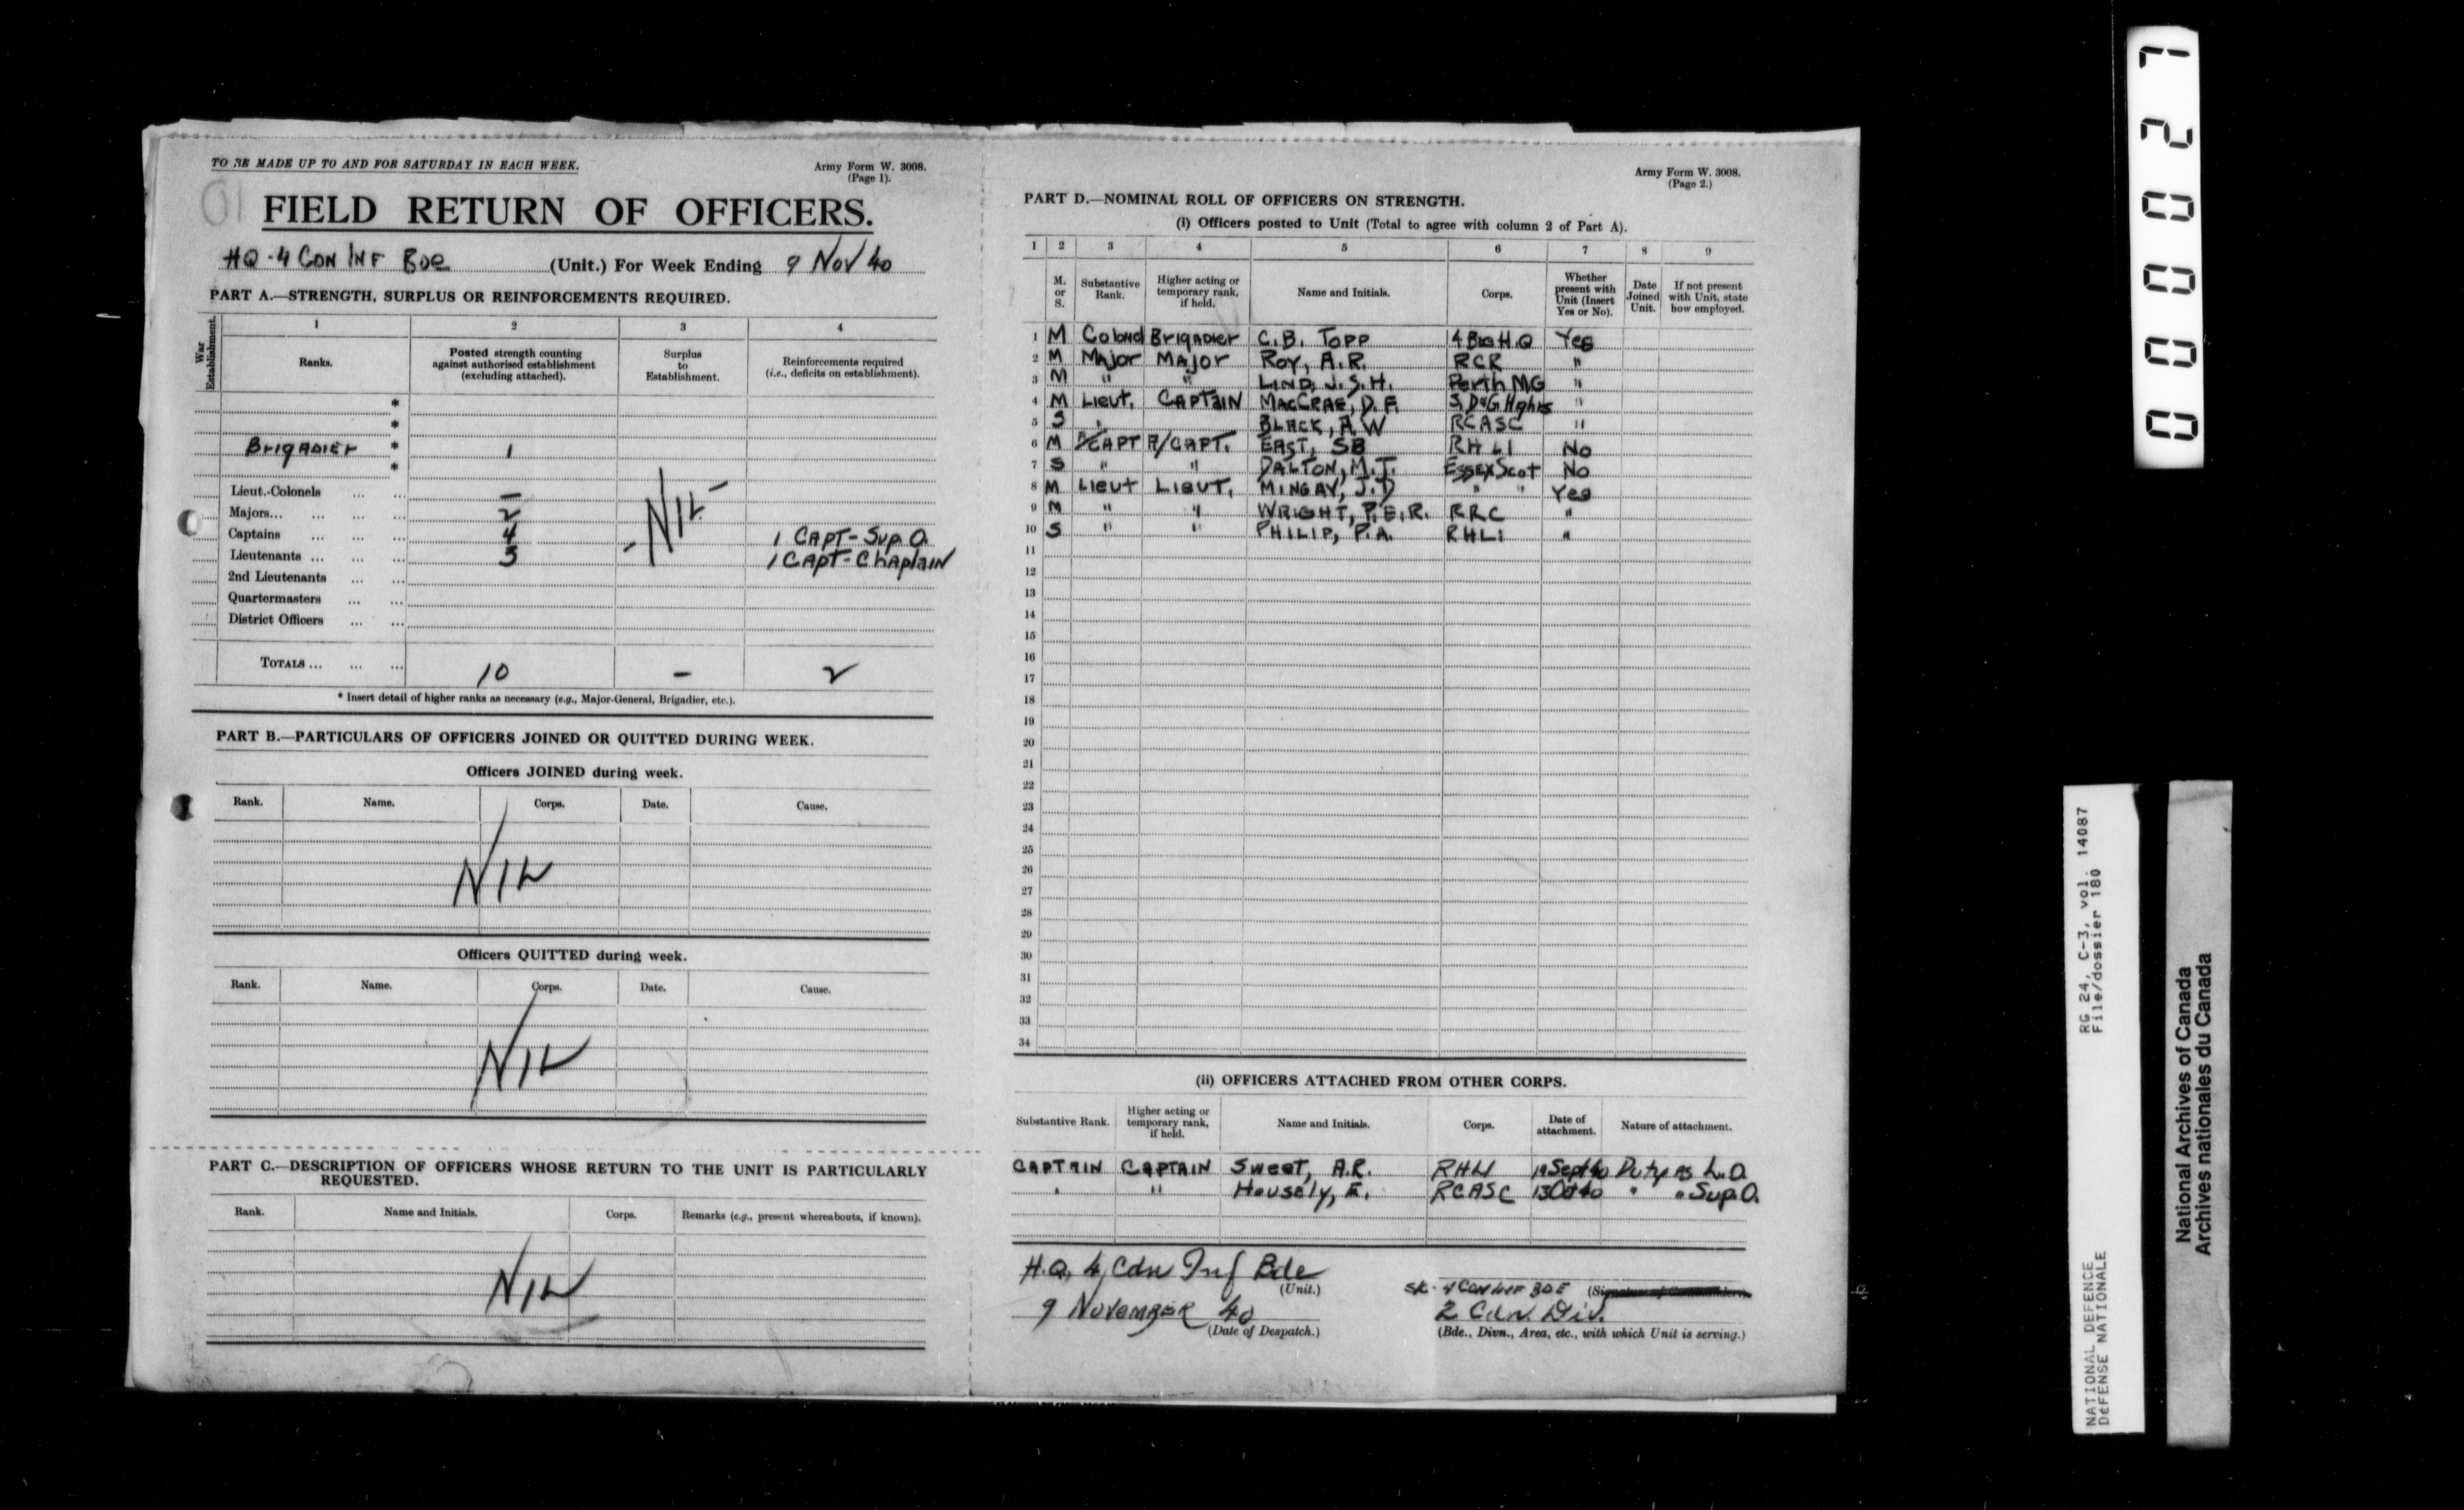 TO BE MADE UP TO AND FOR SATURDAY IN EACH WEEK.
Army Form W. 3008.
(Page 1).
10
FIELD RETURN OF OFFICERS.
HQ - 4 CDN INF BDE (Unit.) For Week Ending 9 NOV 40
PART A.—STRENGTH, SURPLUS OR REINFORCEMENTS REQUIRED.
War Establishment.
1 2 3 4
Ranks.
Posted strength counting against authorised establishment (excluding attached).
Surplus to Establishment.
Reinforcements required (i.e., deficits on establishment).
*
*
BrigADIER * 1
*
Lieut.-Colonels ... ... —
Majors... ... ... ... 2
Captains ... ... ... 4 1 CAPT - Sup. O.
Lieutenants ... ... ... 3 - NIL - 1 CAPT - ChAplaiN
2nd Lieutenants ... ...
Quartermasters ... ...
District Officers ... ...
TOTALS ... ... ... 10 - 2
* Insert detail of higher ranks as necessary (e.g., Major-General, Brigadier, etc.).
PART B.—PARTICULARS OF OFFICERS JOINED OR QUITTED DURING WEEK.
Officers JOINED during week.
Rank. Name. Corps. Date. Cause.
NIL
Officers QUITTED during week.
Rank. Name. Corps. Date. Cause.
NIL
PART C.—DESCRIPTION OF OFFICERS WHOSE RETURN TO THE UNIT IS PARTICULARLY
REQUESTED.
Rank. Name and Initials. Corps. Remarks (e.g., present whereabouts, if known).
NIL
Army Form W. 3008.
(Page 2.)
PART D.—NOMINAL ROLL OF OFFICERS ON STRENGTH.
(i) Officers posted to Unit (Total to agree with column 2 of Part A).
1 2 3 4 5 6 7 8 9
M. or S.
Substantive Rank.
Higher acting or temporary rank, if held.
Name and Initials.
Corps.
Whether present with Unit (Insert Yes or No).
Date Joined Unit.
If not present with Unit, state how employed.
1 M Colonel BrigADIER C.B. TOPP 4 Bde H.Q Yes
2 M MAJOR MAJOR ROY, A.R. RCR "
3 M " " LIND, J.S.H. Perth MG "
4 M Lieut. CAPTAIN MACCRAE, D.F. S.D&G Hghrs "
5 S " BLACK, A.W RCASC "
6 M CAPT A/CAPT. EAST, SB RHLI No
7 S " " DALTON, M.J. Essex Scot No
8 M Lieut Lieut. MINGAY, J.D " " Yes
9 M " " WRIGHT, P.E.R. RRC "
10 S " " PHILIP, P.A. RHLI "
11
12
13
14
15
16
17
18
19
20
21
22
23
24
25
26
27
28
29
30
31
32
33
34
(ii) OFFICERS ATTACHED FROM OTHER CORPS.
Substantive Rank. Higher acting or temporary rank, if held. Name and Initials. Corps. Date of attachment. Nature of attachment.
CAPTAIN CAPTAIN Sweet, A.R. RHLI 19 Sept 40 Duty as L.O.
" " Housely, E. RCASC 13 Oct 40 " " Sup.O.
H.Q. 4 Cdn Inf Bde
(Unit.)
4 CDN INF BDE (Signature of Commander).
9 NOVEMBER 40
(Date of Despatch.)
2 Cdn. Div.
(Bde., Divn., Area, etc., with which Unit is serving.)
000027
RG 24, C-3, vol. 14087
File/dossier 180
NATIONAL DEFENCE
DéFENSE NATIONALE
National Archives of Canada
Archives nationales du Canada